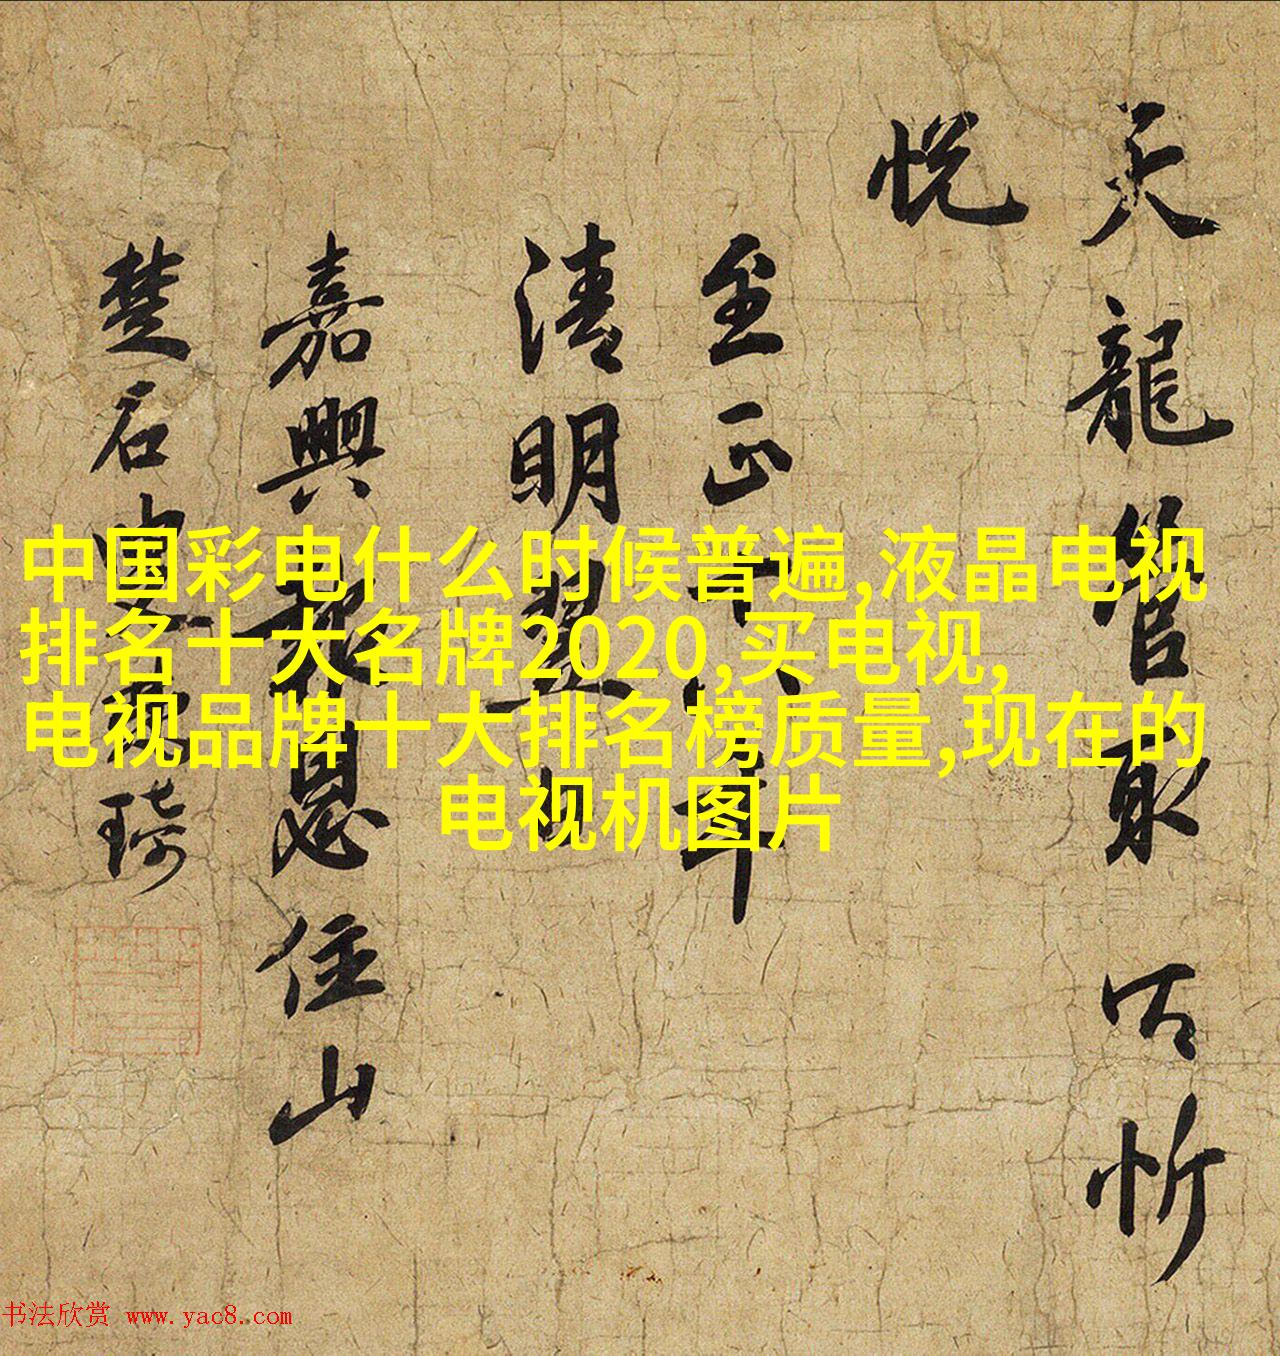 天龍管取以忻
悦
至正十六年
清明翌日
嘉興報恩住山
楚石叟梵琦
中国彩电什么时候普遍,液晶电视
排名十大名牌2020,买电视,
电视品牌十大排名榜质量,现在的
电视机图片
书法欣赏 www.yac8.com